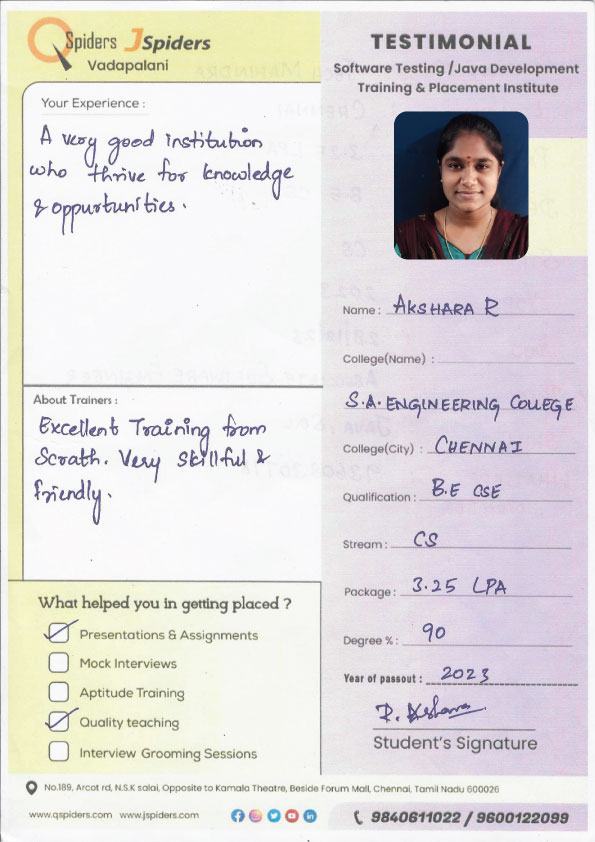 QSpiders JSpiders
Vadapalani
Your Experience :
A very good institution
who thrive for knowledge
& oppurtunities.
About Trainers :
Excellent Training from
Scrath. Very skillful &
friendly.
What helped you in getting placed ?
Presentations & Assignments
Mock Interviews
Aptitude Training
Quality teaching
Interview Grooming Sessions
TESTIMONIAL
Software Testing /Java Development
Training & Placement Institute
Name : AKSHARA R
College(Name) :
S.A. ENGINEERING COLLEGE
College(City) : CHENNAI
Qualification : B.E CSE
Stream : CS
Package : 3.25 LPA
Degree % : 90
Year of passout : 2023
R. Akshara
Student's Signature
No.189, Arcot rd, N.S.K salai, Opposite to Kamala Theatre, Beside Forum Mall, Chennai, Tamil Nadu 600026
www.qspiders.com www.jspiders.com
9840611022 / 9600122099